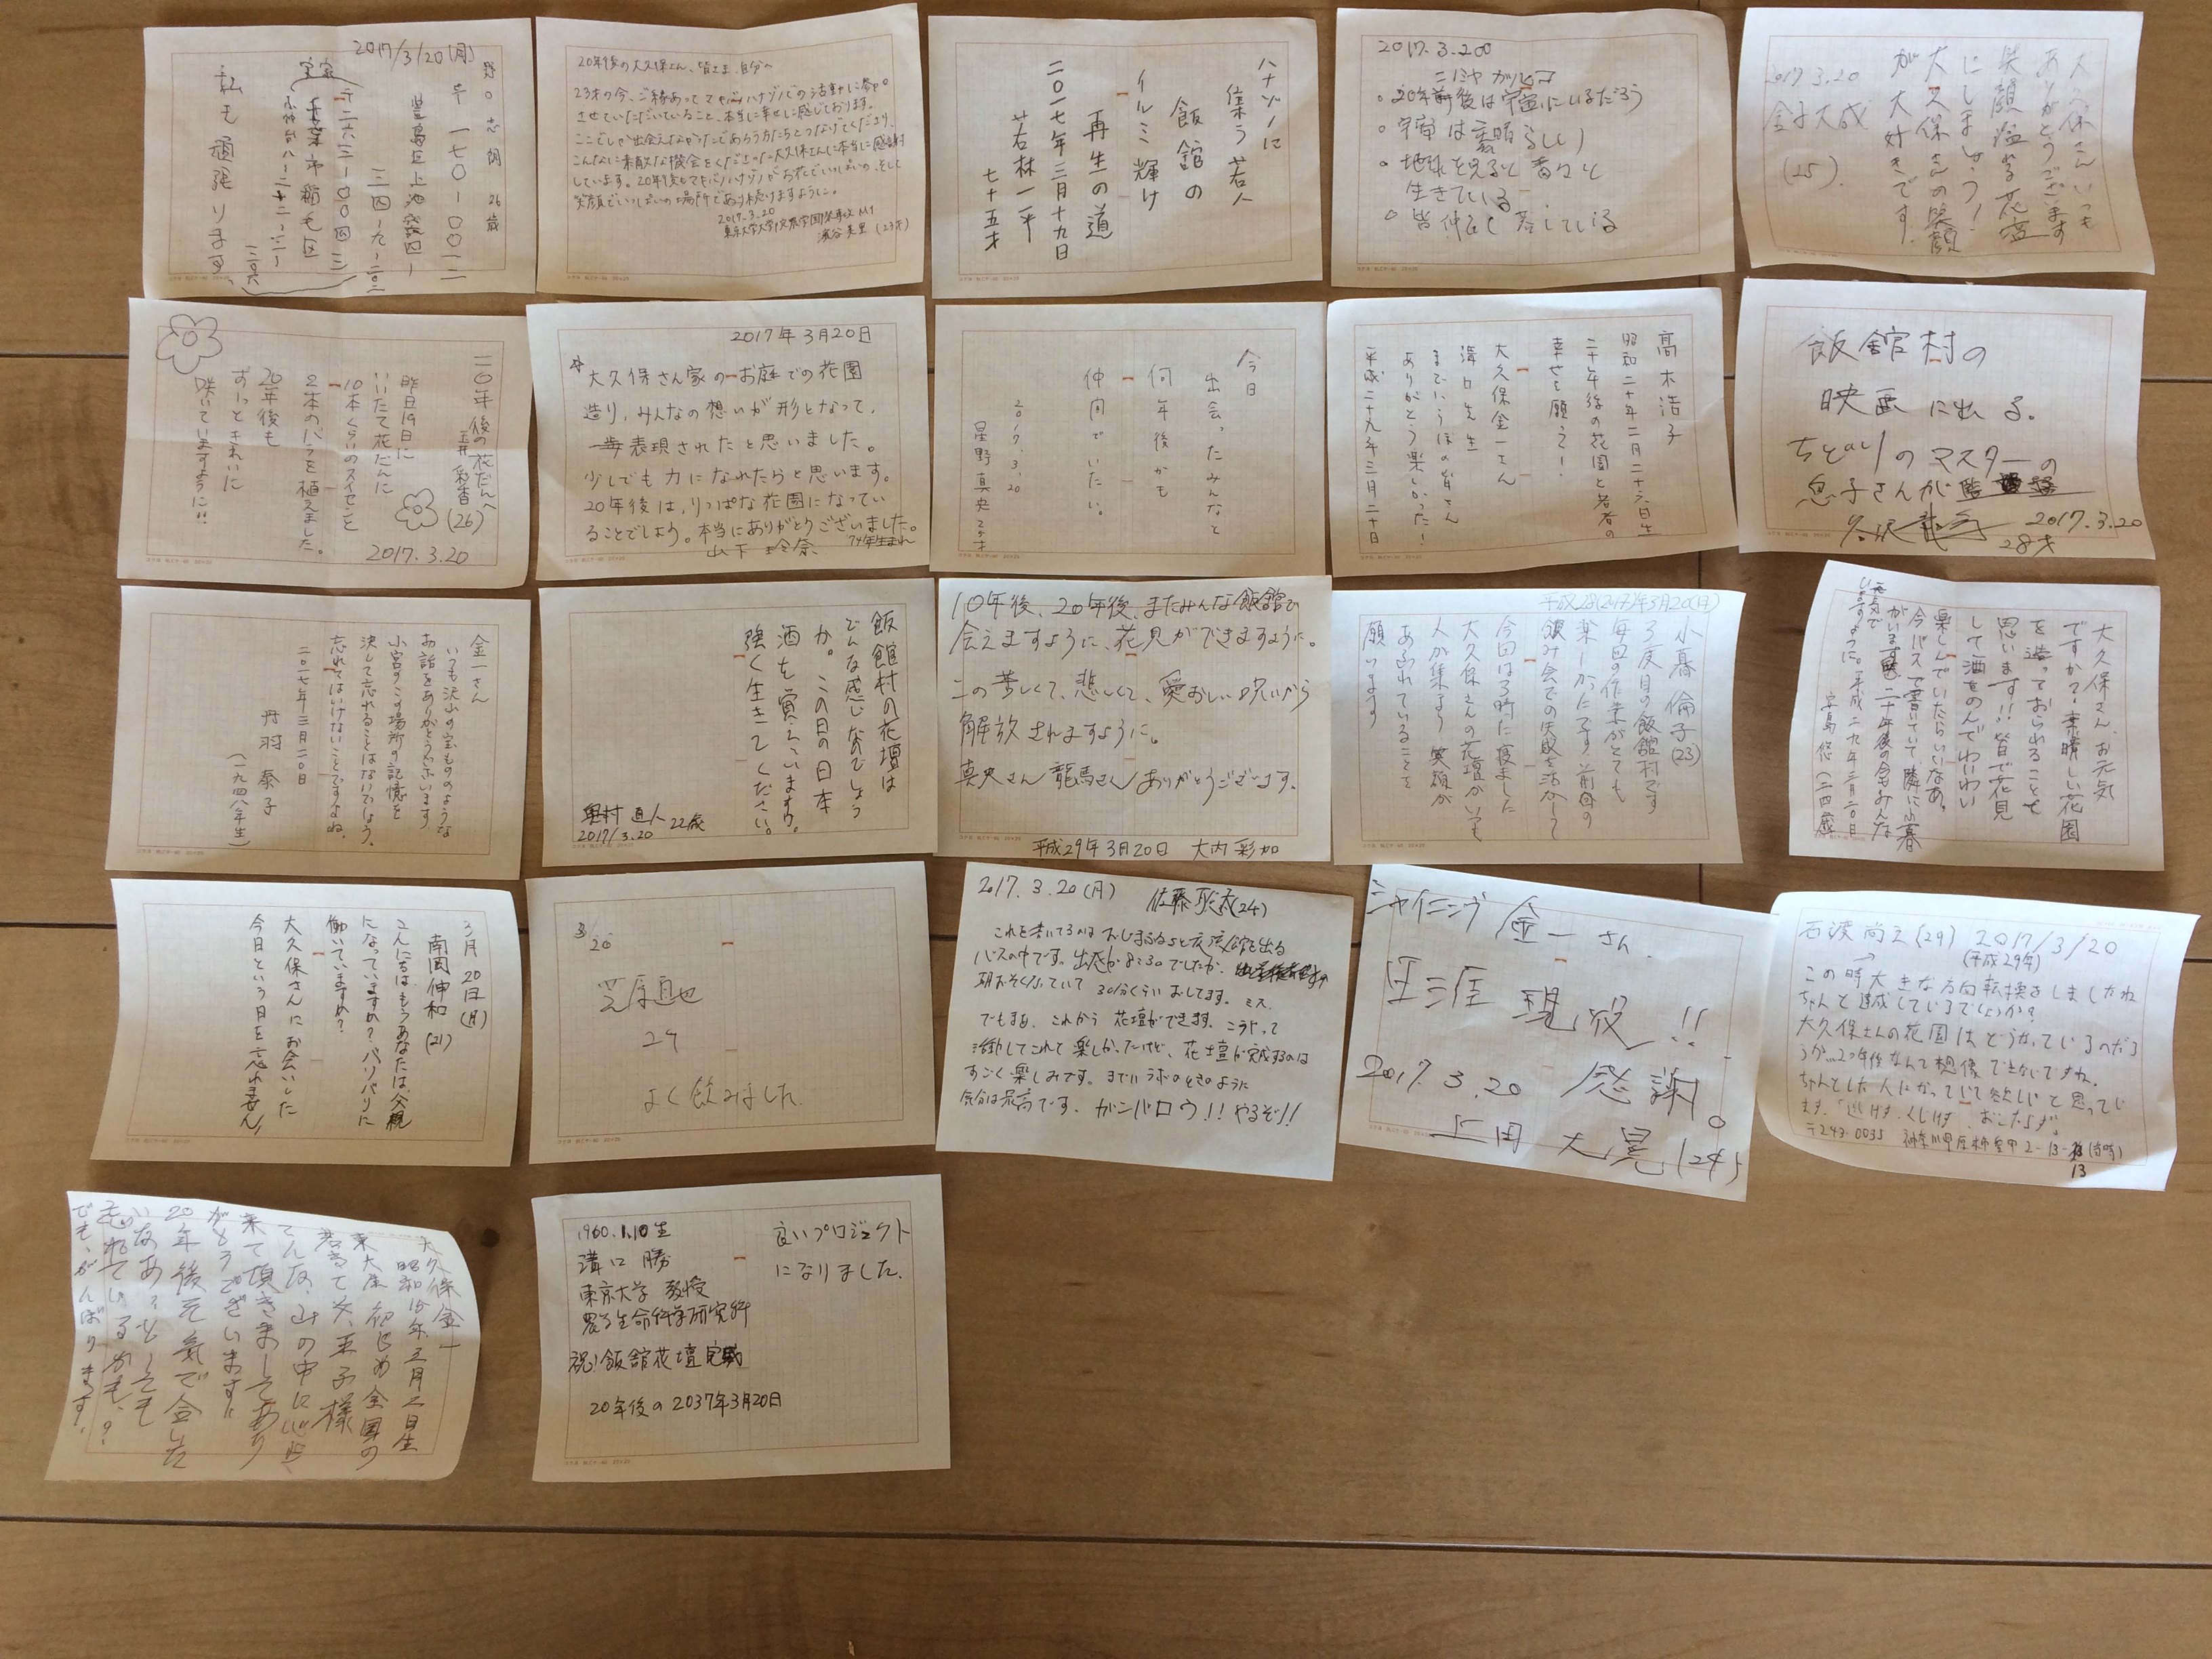 2017/3/20(月)
26歳
〒一七〇-〇〇一二
豊島区上池袋四-
三四-九-二〇二
実家
〒二六三-〇〇四三
千葉市稲毛区
私も頑張ります。
20年後の大久保さん、皆さま、自分へ
23才の今、ご縁あってマキバノハナゾノの活動に参加
させていただいていること、本当に幸せに感じております。
ここでしか出会えなかったであろう方たちとつなげてくださり、
こんなに素敵な機会をくださった大久保さんに本当に感謝
しています。20年後もマキバノハナゾノがお花でいっぱいの、そして
笑顔でいっぱいの場所であり続けますように。
2017.3.20
(23才)
ハナゾノに
集う若人
飯舘の
イルミ輝け
再生の道
二〇一七年三月十九日
若林一平
七十五才
2017.3.20
20年後は宇宙にいるだろう
宇宙は素晴らしい
地球を見ると青々と
生きている
皆仲良く暮している
大久保さんいつも
ありがとうございます
笑顔溢れる花壇
にしましょう!
大久保さんの笑顔
が大好きです。
2017.3.20
金子大成
(25)
二〇年後の花だんへ
彩香(26)
昨日19日に
いいたて花だんに
10本くらいのスイセンと
2本のバラを植えました。
20年後も
ずーっときれいに
咲いていますように!!
2017.3.20
2017年3月20日
大久保さん家のお庭での花園
造り、みんなの想いが形となって、
表現されたと思いました。
少しでも力になれたらと思います。
20年後は、りっぱな花園になってい
ることでしょう。本当にありがとうございました。
山下 玲奈
74年生まれ
今日
出会ったみんなと
何年後かも
仲間でいたい。
2017.3.20
星野真央
高木浩子
昭和二十年二月二十六日生
二十年後の花園と若者の
幸せを願って!
大久保金一さん
溝口先生
までいうほの皆さん
ありがとう楽しかった!
平成二十九年三月二十日
飯舘村の
映画に出る。
マスターの
息子さんが
2017.3.20
28才
金一さん
いつも沢山の宝もののような
お話をありがとうございます
小宮のこの場所の記憶を
決して忘れることはないでしょう。
忘れてはいけないことですよね。
二〇一七年三月二〇日
丹羽 泰子
(一九四八年生)
飯舘村の花壇は
どんな感じなのでしょう
か。この日の日本
酒を覚えています。
強く生きてください。
奥村 直人 22歳
2017/3.20
10年後、20年後、またみんな飯舘で
会えますように、花見ができますように。
この苦しくて、悲しくて、愛おしい呪いから
解放されますように。
真央さん 龍馬さん ありがとうございます。
平成29年3月20日 大内 彩加
3月20日(月)
小暮 倫子(23)
3度目の飯舘村です
毎回の作業がとても
楽しかったです 前回の
飲み会での失敗を活かして
今回は3時に寝ました
大久保さんの花壇がいつも
人が集まり 笑顔が
あふれていることを
願います
大久保さん、お元気
ですか?素晴しい花園
を造っておられることを
思います!!皆で花見
して酒をのんでわいわい
楽しんでいたらいいなあ。
今バスで書いていて、隣に小暮
がいます。二十年後の今もみんな
元気で
いますように。平成二九年三月二〇日
(二四歳)
3月20日(月)
南岡伸和(21)
こんにちは。もうあなたは、父親
になっていますか?バリバリに
働いていますか?
大久保さんにお会いした
今日という日を忘れません。
3/20
芝原直也
24
よく飲みました
2017.3.20(月)
佐藤 (24)
バスの中です。出発が8:30でしたが、
30分くらいおしてます。ミス
でもまあ、これから花壇ができます。こうやって
活動してこれて楽しかったけど、花壇が完成するのは
すごく楽しみです。までいうほのときのように
気分は最高です。ガンバロウ!!やるぞ!!
シャイニング金一さん
生涯現役!!
2017.3.20 感謝。
上田 大晃(24)
石渡尚之(29) 2017/3/20
(平成29年)
この時大きな方向転換をしましたね
ちゃんと達成しているでしょうか?
大久保さんの花園はどうなっているのだろ
うか…20年後なんて想像できないですね。
ちゃんとした人になっていて欲しいと思ってい
ます。「逃げず、くじけず、おこたらず」
〒243-0035
大久保金一
三月二日生
東大を初め全国の
若き乙女、王子様
こんな、山の中に
来て頂きましてあり
がとうございます
20年後元気で会いた
いなあ、とっても
忘れているかも、?
でも、がんばります。
1960.1.10生
溝口 勝
東京大学 教授
農学生命科学研究科
祝!飯舘花壇完成
20年後の2037年3月20日
良いプロジェクト
になりました。